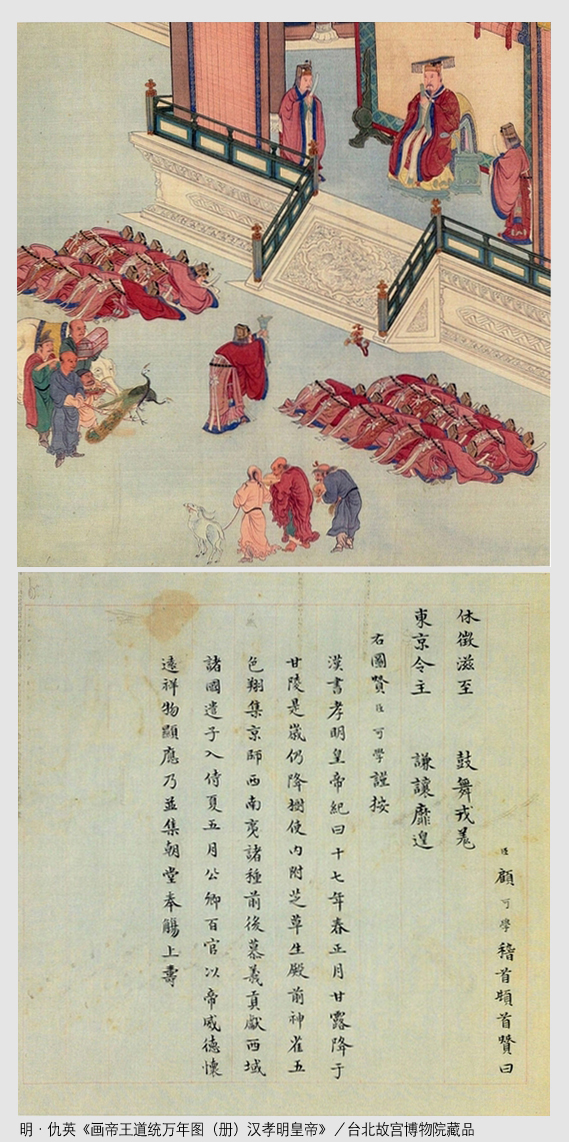 臣顧可學稽首頓首贊曰
休徵滋至 鼓舞戎羗
東京令主 謙讓靡遑
右圖贊臣可學謹按
漢書孝明皇帝紀曰十七年春正月甘露降于
甘陵是歲仍降樹使内附芝草生殿前神雀五
色翔集京師西南夷諸種前後慕義貢獻西域
諸國遣子入侍夏五月公卿百官以帝威德懷
遠祥物顯應乃並集朝堂奉觴上壽
明·仇英《画帝王道统万年图（册）汉孝明皇帝》／台北故宫博物院藏品